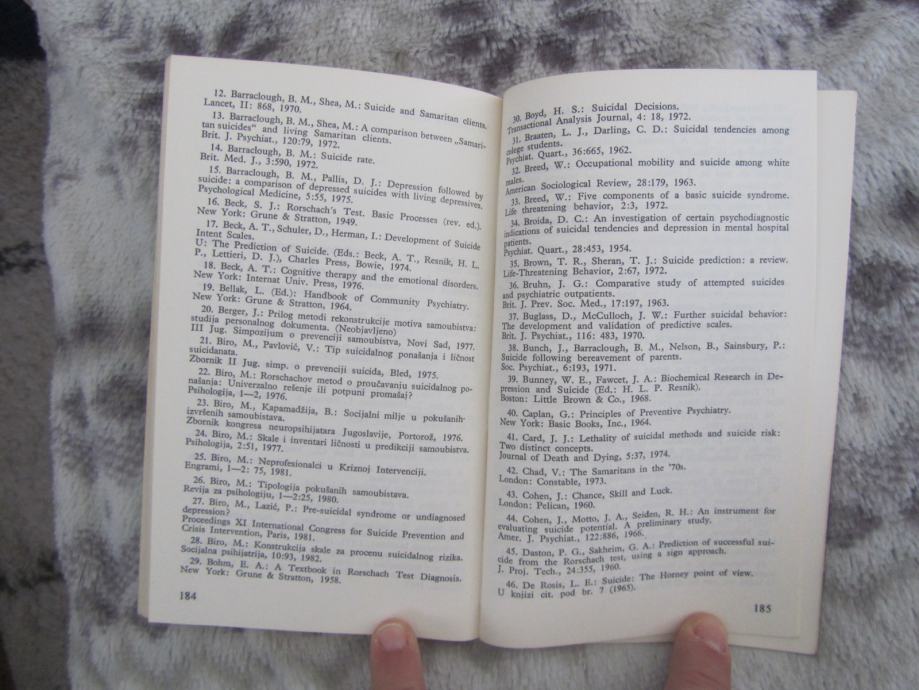 12. Barraclough, B. M., Shea, M.: Suicide and Samaritan clients.
Lancet, II: 868, 1970.
13. Barraclough, B. M., Shea, M.: A comparison between „Samari-
tan suicides“ and living Samaritan clients.
Brit. J. Psychiat., 120:79, 1972.
14. Barraclough, B. M.: Suicide rate.
Brit. Med. J., 3:590, 1972.
15. Barraclough, B. M., Pallis, D. J.: Depression followed by
suicide: a comparison of depressed suicides with living depressives.
Psychological Medicine, 5:55, 1975.
16. Beck, S. J.: Rorschach's Test. Basic Processes (rev. ed.).
New York: Grune & Stratton, 1949.
17. Beck, A. T., Schuler, D., Herman, I.: Development of Suicide
Intent Scales.
U: The Prediction of Suicide. (Eds.: Beck, A. T., Resnik, H. L.
P., Lettieri, D. J.), Charles Press, Bowie, 1974.
18. Beck, A. T.: Cognitive therapy and the emotional disorders.
New York: Internat Univ. Press, 1976.
19. Bellak, L. (Ed.): Handbook of Community Psychiatry.
New York: Grune & Stratton, 1964.
20. Berger, J.: Prilog metodi rekonstrukcije motiva samoubistva:
studija personalnog dokumenta. (Neobjavljeno)
III Jug. Simpozijum o prevenciji samoubistva, Novi Sad, 1977.
21. Biro, M., Pavlović, V.: Tip suicidalnog ponašanja i ličnost
suicidanata.
Zbornik II Jug. simp. o prevenciji suicida, Bled, 1975.
22. Biro, M.: Rorschachov metod o proučavanju suicidalnog po-
našanja: Univerzalno rešenje ili potpuni promašaj?
Psihologija, 1—2, 1976.
23. Biro, M., Kapamadžija, B.: Socijalni milje u pokušanih-
izvršenih samoubistava.
Zbornik kongresa neuropsihijatara Jugoslavije, Portorož, 1976.
24. Biro, M.: Skale i inventari ličnosti u predikciji samoubistva.
Psihologija, 2:51, 1977.
25. Biro, M.: Neprofesionalci u Kriznoj Intervenciji.
Engrami, 1—2: 75, 1981.
26. Biro, M.: Tipologija pokušanih samoubistava.
Revija za psihologiju, 1—2:25, 1980.
27. Biro, M., Lazić, P.: Pre-suicidal syndrome or undiagnosed
depression?
Proceedings XI International Congress for Suicide Prevention and
Crisis Intervention, Paris, 1981.
28. Biro, M.: Konstrukcija skale za procenu suicidalnog rizika.
Socijalna psihijatrija, 10:93, 1982.
29. Bohm, E. A.: A Textbook in Rorschach Test Diagnosis.
New York: Grune & Stratton, 1958.
184
30. Boyd, H. S.: Suicidal Decisions.
Transactional Analysis Journal, 4: 18, 1972.
31. Braaten, L. J., Darling, C. D.: Suicidal tendencies among
college students.
Psychiat. Quart., 36:665, 1962.
32. Breed, W.: Occupational mobility and suicide among white
males.
American Sociological Review, 28:179, 1963.
33. Breed, W.: Five components of a basic suicide syndrome.
Life threatening behavior, 2:3, 1972.
34. Broida, D. C.: An investigation of certain psychodiagnostic
indications of suicidal tendencies and depression in mental hospital
patients.
Psychiat. Quart., 28:453, 1954.
35. Brown, T. R., Sheran, T. J.: Suicide prediction: a review.
Life-Threatening Behavior, 2:67, 1972.
36. Bruhn, J. G.: Comparative study of attempted suicides
and psychiatric outpatients.
Brit. J. Prev. Soc. Med., 17:197, 1963.
37. Buglass, D., McCulloch, J. W.: Further suicidal behavior:
The development and validation of predictive scales.
Brit. J. Psychiat., 116: 483, 1970.
38. Bunch, J., Barraclough, B. M., Nelson, B., Sainsbury, P.:
Suicide following bereavement of parents.
Soc. Psychiat., 6:193, 1971.
39. Bunney, W. E., Fawcet, J. A.: Biochemical Research in De-
pression and Suicide (Ed.: H. L. P. Resnik).
Boston: Little Brown & Co., 1968.
40. Caplan, G.: Principles of Preventive Psychiatry.
New York: Basic Books, Inc., 1964.
41. Card, J. J.: Lethality of suicidal methods and suicide risk:
Two distinct concepts.
Journal of Death and Dying, 5:37, 1974.
42. Chad, V.: The Samaritans in the '70s.
London: Constable, 1973.
43. Cohen, J.: Chance, Skill and Luck.
London: Pelican, 1960.
44. Cohen, J., Motto, J. A., Seiden, R. H.: An instrument for
evaluating suicide potential. A preliminary study.
Amer. J. Psychiat., 122:886, 1966.
45. Daston, P. G., Sakheim, G. A.: Prediction of successful sui-
cide from the Rorschach test, using a sign approach.
J. Proj. Tech., 24:355, 1960.
46. De Rosis, L. E.: Suicide: The Horney point of view.
U knjizi cit. pod br. 7 (1965).
185